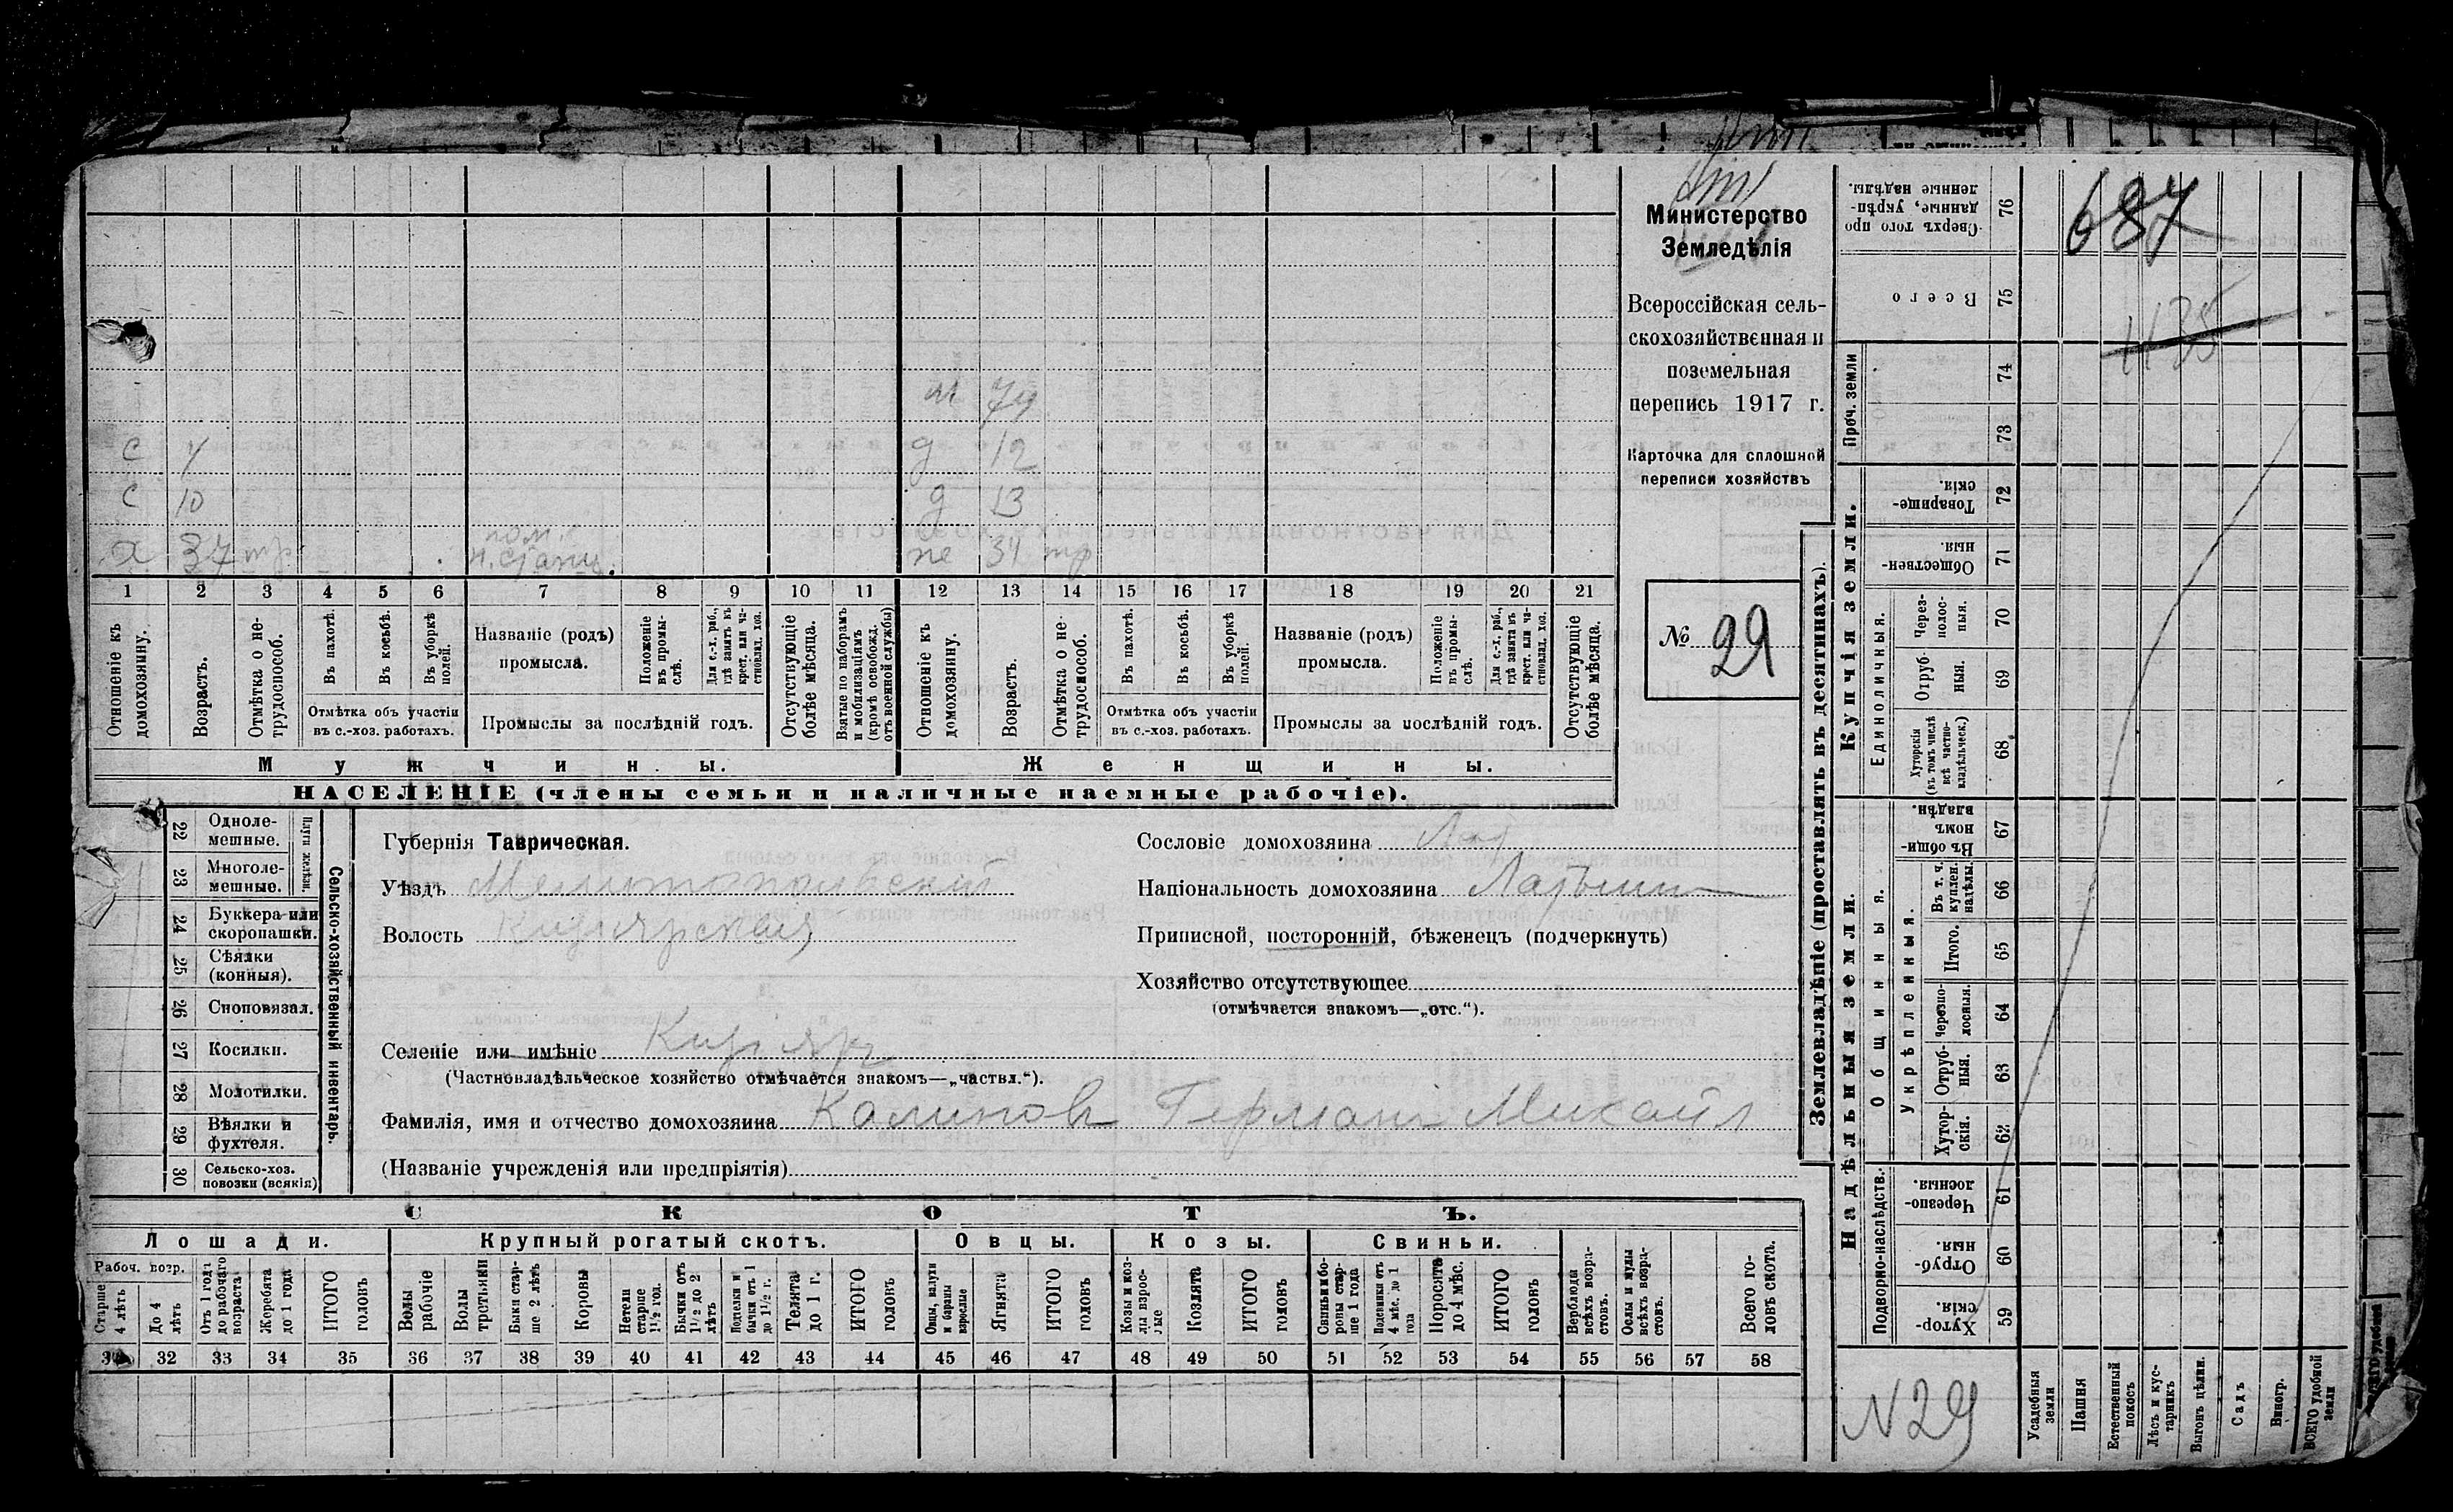 м 74
с 4 д 12
с 10 д 13
х 37 тр. пом. н. станц. же 34 тр
1 2 3 4 5 6 7 8 9 10 11 12 13 14 15 16 17 18 19 20 21
Отношеніе къ домохозяину.
Возрастъ.
Отмѣтка о нетрудоспособ.
Въ пахотѣ.
Въ косьбѣ.
Въ уборкѣ полей.
Отмѣтка объ участіи въ с.-хоз. работахъ.
Названіе (родъ) промысла.
Положеніе въ промыслѣ.
Для с.-х. раб., гдѣ занятъ въ крест. или частновлад. хоз.
Промыслы за послѣдній годъ.
Отсутствующіе болѣе мѣсяца.
Взятые по наборамъ и мобилизаціямъ (кромѣ освобожд. отъ военной службы)
Отношеніе къ домохозяину.
Возрастъ.
Отмѣтка о нетрудоспособ.
Въ пахотѣ.
Въ косьбѣ.
Въ уборкѣ полей.
Отмѣтка объ участіи въ с.-хоз. работахъ.
Названіе (родъ) промысла.
Положеніе въ промыслѣ.
Для с.-х. раб., гдѣ занята въ крест. или частновлад. хоз.
Промыслы за послѣдній годъ.
Отсутствующіе болѣе мѣсяца.
Мужчины. Женщины.
НАСЕЛЕНІЕ (члены семьи и наличные наемные рабочіе).
Министерство
Земледѣлія
Всероссійская сель-
скохозяйственная и
поземельная
перепись 1917 г.
Карточка для сплошной
переписи хозяйствъ
№ 29
22 Одноле-мешные.
23 Многоле-мешные.
Плуги желѣзн.
24 Буккера или скоропашки.
25 Сѣялки (конныя).
26 Сноповязал.
27 Косилки.
28 Молотилки.
29 Вѣялки и фухтеля.
30 Сельско-хоз. повозки (всякія)
Сельско-хозяйственный инвентарь.
Губернія Таврическая.
Уѣздъ Мелитопольскій
Волость Кизіярская
Селеніе или имѣніе Кизіяръ
(Частновладѣльческое хозяйство отмѣчается знакомъ—„частвл.“).
Фамилія, имя и отчество домохозяина Калиновъ Германъ Михайл
(Названіе учрежденія или предпріятія)
Сословіе домохозяина
Національность домохозяина Латыш
Приписной, посторонній, бѣженецъ (подчеркнуть)
Хозяйство отсутствующее
(отмѣчается знакомъ—„отс.“).
СКОТЪ.
Лошади. Крупный рогатый скотъ. Овцы. Козы. Свиньи.
Рабоч. возр.
Старше 4 лѣтъ
До 4 лѣтъ
Отъ 1 года до рабочаго возраста
Жеребята до 1 года
ИТОГО головъ
Волы рабочіе
Волы третьяки
Быки старше 2 лѣтъ
Коровы
Нетели старше 1½ год.
Бычки отъ 1½ до 2 лѣтъ
Подтелки и бычки отъ 1 до 1½ г.
Телята до 1 г.
ИТОГО головъ
Овцы, валухи и бараны взрослые
Ягнята
ИТОГО головъ
Козы и козлы взрослые
Козлята
ИТОГО головъ
Свиньи и боровы старше 1 года
Подсвинки отъ 4 мѣс. до 1 года
Поросята до 4 мѣс.
ИТОГО головъ
Верблюды всѣхъ возрастовъ.
Ослы и мулы всѣхъ возрастовъ.
Всего головъ скота.
32 33 34 35 36 37 38 39 40 41 42 43 44 45 46 47 48 49 50 51 52 53 54 55 56 57 58
Землевладѣніе (проставлять въ десятинахъ).
Купчія земли.
Сверхъ того проданные, укрѣпленные надѣлы. 76
Всего 75
Проч. земли 74 73
Товарищескія. 72
Общественныя. 71
Единоличныя.
Черезполосныя. 70
Отрубныя. 69
Хуторскія (въ томъ числѣ всѣ частновладѣльческ.) 68
Надѣльныя земли.
Общинныя.
Въ общинномъ владѣн. 67
Укрѣпленныя.
Въ т. ч. куплен. надѣлы. 66
Итого. 65
Черезполосныя. 64
Отрубныя. 63
Хуторскія. 62
Подворно-наслѣдств.
Черезполосныя. 61
Отрубныя. 60
Хуторскія. 59
687
1135
N 29
Усадебныя земли
Пашня
Естественный покосъ
Лѣсъ и кустарникъ
Выгонъ цѣлин.
Садъ
Виногр.
ВСЕГО удобной земли